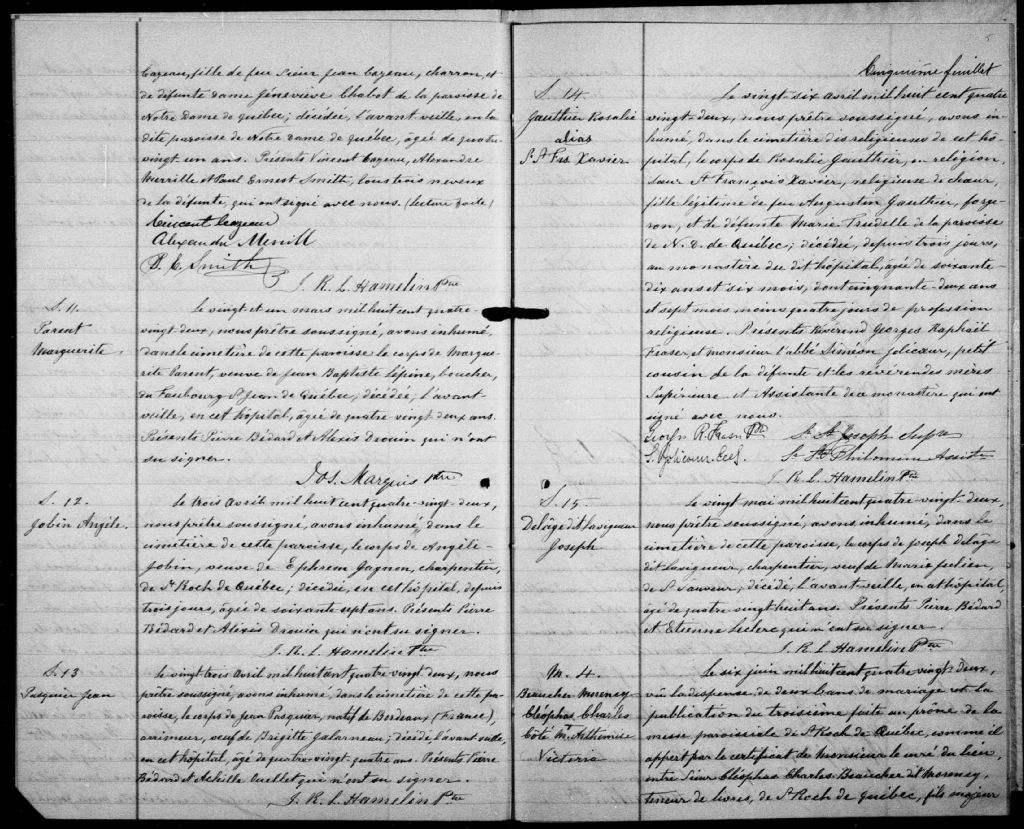 Cazeau, fille de feu Sieur Jean Cazeau, charron, et
de défunte Dame Geneviève Chabot de la paroisse de
Notre Dame de Québec; décédée, l'avant veille, en la
dite paroisse de Notre Dame de Québec, âgée de quatre
vingt un ans. Présents Vincent Cazeau, Alexandre
et Paul Ernest Smith, tous trois neveux
de la défunte, qui ont signé avec nous. (lecture faite)
Vincent Cazeau
Alexandre
P. E. Smith
J. R. L. Hamelin Ptre
S. 11.
Parent
Marguerite
Le vingt et un mars mil huit cent quatre-
vingt deux, nous prêtre soussigné, avons inhumé,
dans le cimetière de cette paroisse le corps de Margue-
rite Parent, veuve de Jean Baptiste Lépine, boucher,
du Faubourg St Jean de Québec; décédée, l'avant-
veille, en cet hôpital, âgée de quatre vingt deux ans.
Présents Pierre Bédard et Alexis Drouin qui n'ont
su signer.
Jos. Marquis ptre
S. 12.
Jobin Angèle.
Le trois Avril mil huit cent quatre-vingt-deux,
nous prêtre soussigné, avons inhumé, dans le
cimetière de cette paroisse, le corps de Angèle
Jobin, veuve de Ephrem Gagnon, charpentier,
de St Roch de Québec; décédée, en cet hôpital, depuis
trois jours, âgée de soixante sept ans. Présents Pierre
Bédard et Alexis Drouin qui n'ont su signer.
J. R. L. Hamelin Ptre
S. 13
Pasquier Jean
Le vingt trois Avril mil huit cent quatre vingt deux, nous
prêtre soussigné, avons inhumé, dans le cimetière de cette pa-
roisse, le corps de Jean Pasquier, natif de Bordeaux (France),
arrimeur, veuf de Brigitte Galarneau; décédé, l'avant veille,
en cet hôpital, âgé de quatre-vingt-quatre ans. Présents Pierre
Bédard et Achille Ouellet qui n'ont su signer.
J. R. L. Hamelin Ptre
Cinquième feuillet
S. 14
Gauthier Rosalie
alias
Sr St Frs Xavier
Le vingt-six avril mil huit cent quatre
vingt-deux, nous prêtre soussigné, avons in-
humé, dans le cimetière des religieuses de cet hô-
pital, le corps de Rosalie Gauthier, en religion,
Sœur St François Xavier, religieuse de chœur,
fille légitime de feu Augustin Gauthier, forge-
ron, et de défunte Marie Trudelle de la paroisse
de N. D. de Québec; décédée, depuis trois jours,
au monastère du dit hôpital, âgée de soixante-
dix ans et six mois, dont cinquante-deux ans
et sept mois moins quatre jours de profession
religieuse. Présents Révérend Georges Raphaël
Fraser, et monsieur l'abbé Siméon Jolicœur, petit
cousin de la défunte et les révérendes mères
Supérieure et Assistante de ce monastère qui ont
signé avec nous.
R. Fraser Ptre
Sr St Joseph Supre
S. Jolicœur. Eccl.
Sr St Philomène Assist
J. R. L. Hamelin Ptre
S. 15
Delâge dit Lavigueur
Joseph
Le vingt mai mil huit cent quatre-vingt-deux,
nous prêtre soussigné, avons inhumé, dans le
cimetière de cette paroisse, le corps de Joseph Delâge
dit Lavigueur, charpentier, veuf de Marie Julien,
de St Sauveur; décédé, l'avant-veille, en cet hôpital,
âgé de quatre vingt huit ans. Présents Pierre Bédard
et Etienne Leclerc qui n'ont su signer.
J. R. L. Hamelin Ptre
M. 4.
Beaucher Morency
Cléophas Charles
Côté M. Arthémise
Victoria
Le six juin mil huit cent quatre vingt-deux,
vû la dispense de deux bans de mariage et la
publication du troisième faite au prône de la
messe paroissiale de St Roch de Québec, comme il
appert par le certificat de Monsieur le curé du lieu,
entre Sieur Cléophas Charles Beaucher dit Morency,
teneur de livres, de St Roch de Québec, fils majeur